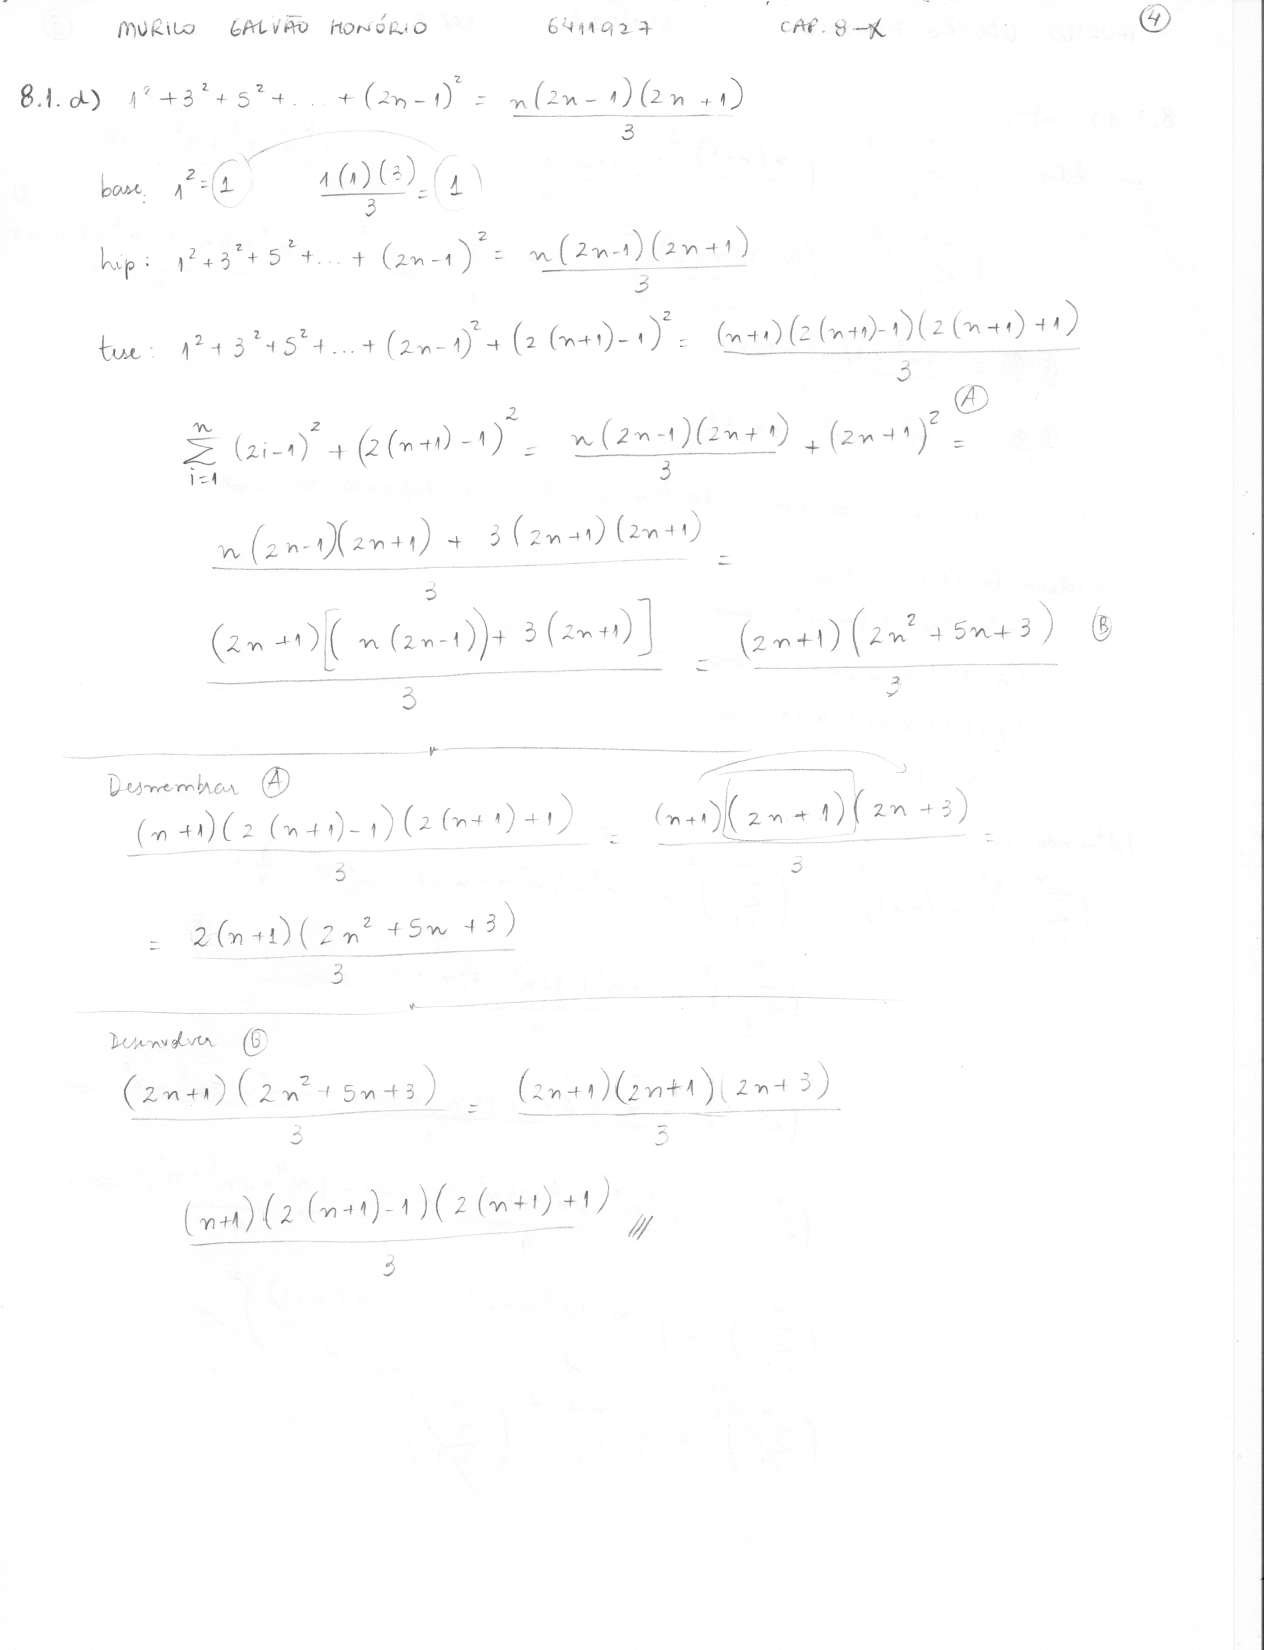 MURILO GALVÃO HONÓRIO 6411927 CAP. 8-X 4
8.1. d) 1² + 3² + 5² + ... + (2n - 1)² = n(2n - 1)(2n + 1) / 3
base: 1² = 1 1(1)(3) / 3 = 1
hip: 1² + 3² + 5² + ... + (2n-1)² = n(2n-1)(2n+1) / 3
tese: 1² + 3² + 5² + ... + (2n-1)² + (2(n+1)-1)² = (n+1)(2(n+1)-1)(2(n+1)+1) / 3 A
n Σ i=1 (2i-1)² + (2(n+1)-1)² = n(2n-1)(2n+1) / 3 + (2n+1)² =
n(2n-1)(2n+1) + 3(2n+1)(2n+1) / 3 =
(2n+1)[(n(2n-1)) + 3(2n+1)] / 3 = (2n+1)(2n² + 5n + 3) / 3 B
Desmembrar A
(n+1)(2(n+1)-1)(2(n+1)+1) / 3 = (n+1)(2n+1)(2n+3) / 3 =
= 2(n+1)(2n² + 5n + 3) / 3
Desenvolver B
(2n+1)(2n² + 5n + 3) / 3 = (2n+1)(2n+1)(2n+3) / 3
(n+1)(2(n+1)-1)(2(n+1)+1) / 3 ///